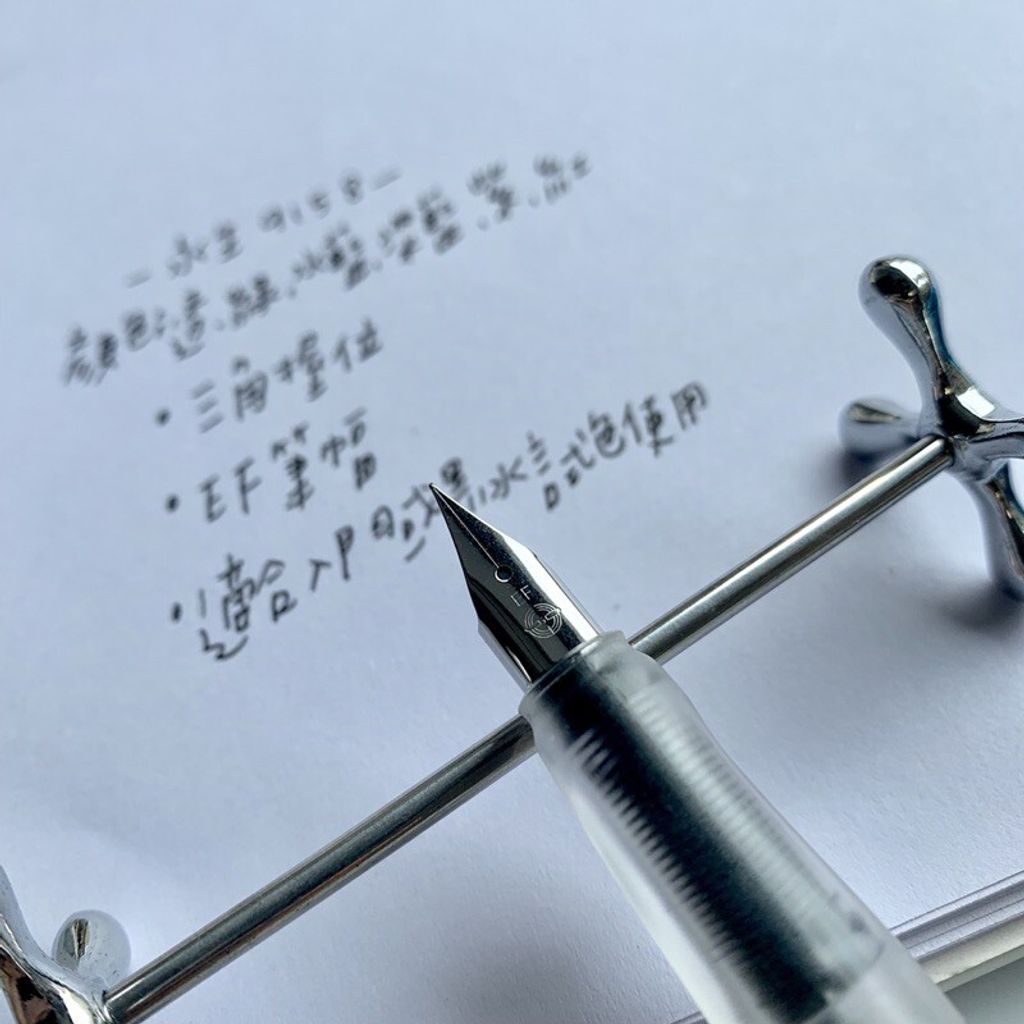 — 永生 9158 —
顏色:透、綠、水藍、深藍、紫、
• 三角握位
• EF筆幅
• 適合入門或墨水試色使用
EF